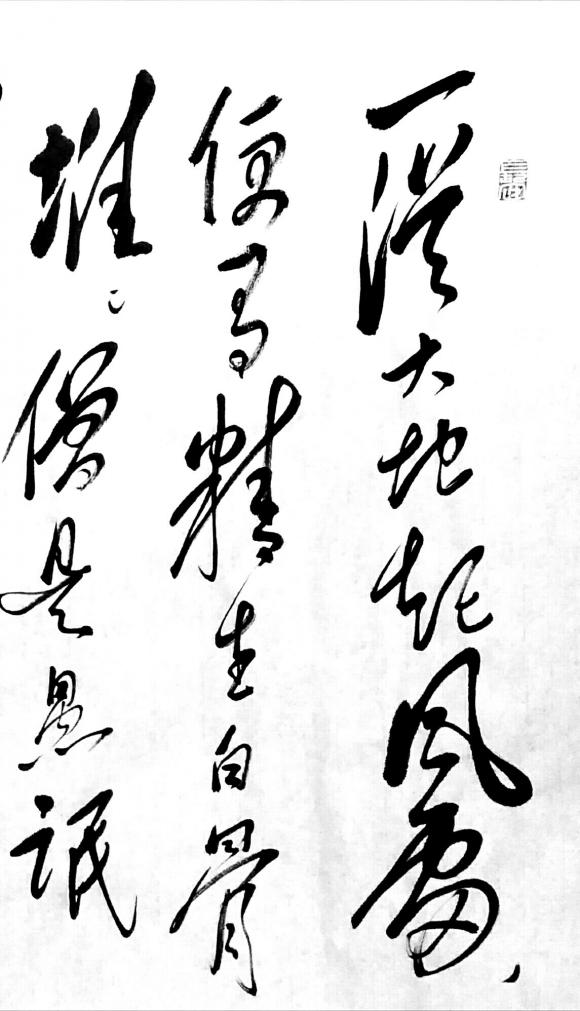 一從大地起風雷，
便有精生白骨
堆。僧是愚氓